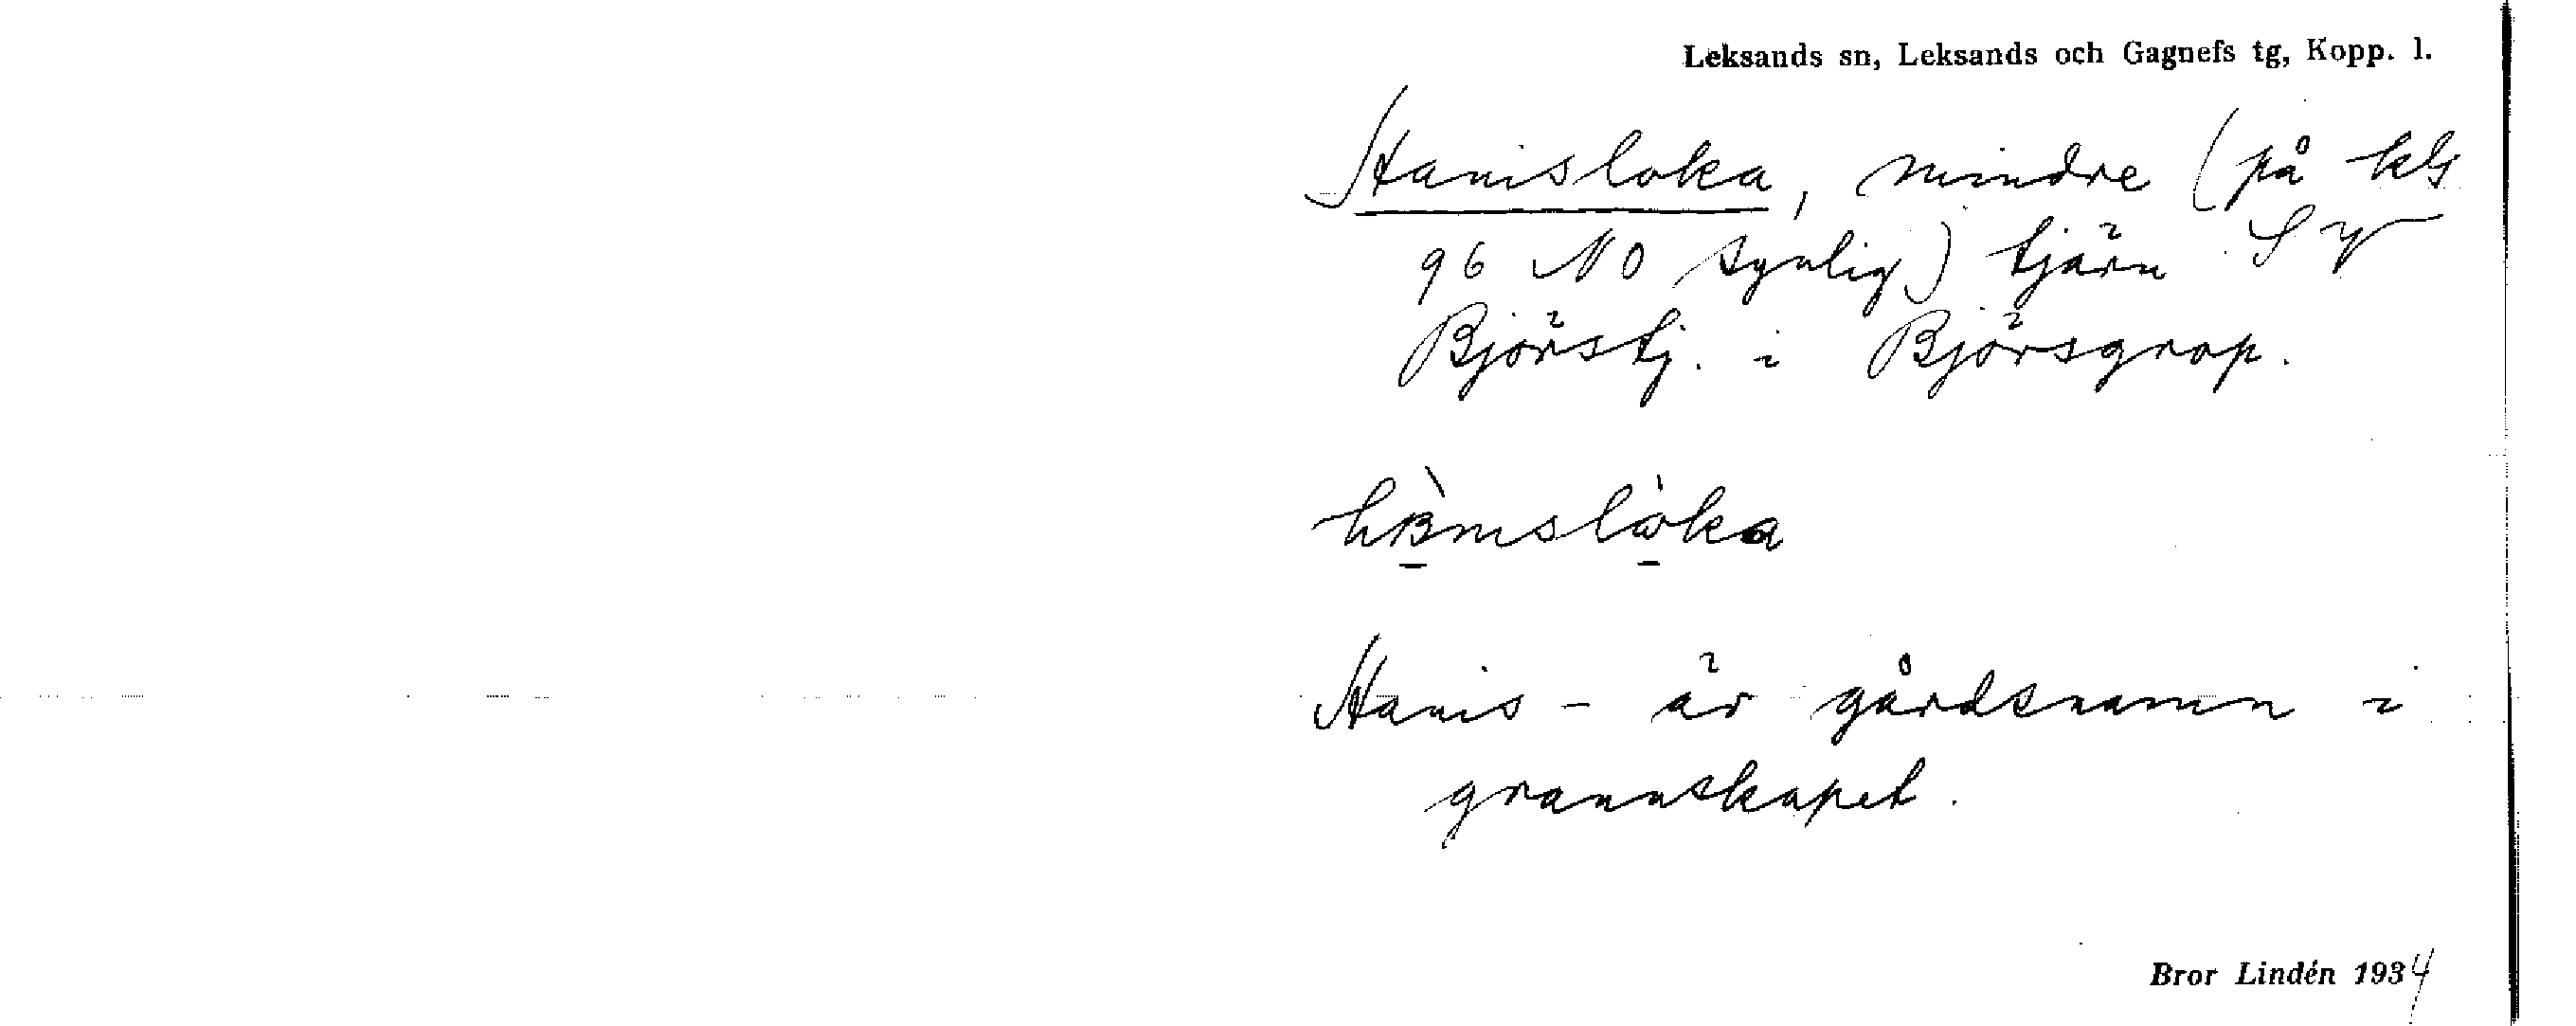 Leksands sn, Leksands och Gagnefs tg, Kopp. l.
Hanisloka, mindre (på kbl
96 NO synlig) tjärn S
Björstj. i Björsgrop.
Hanis- är gårdsnamn i
grannskapet.
Bror Lindén 1934